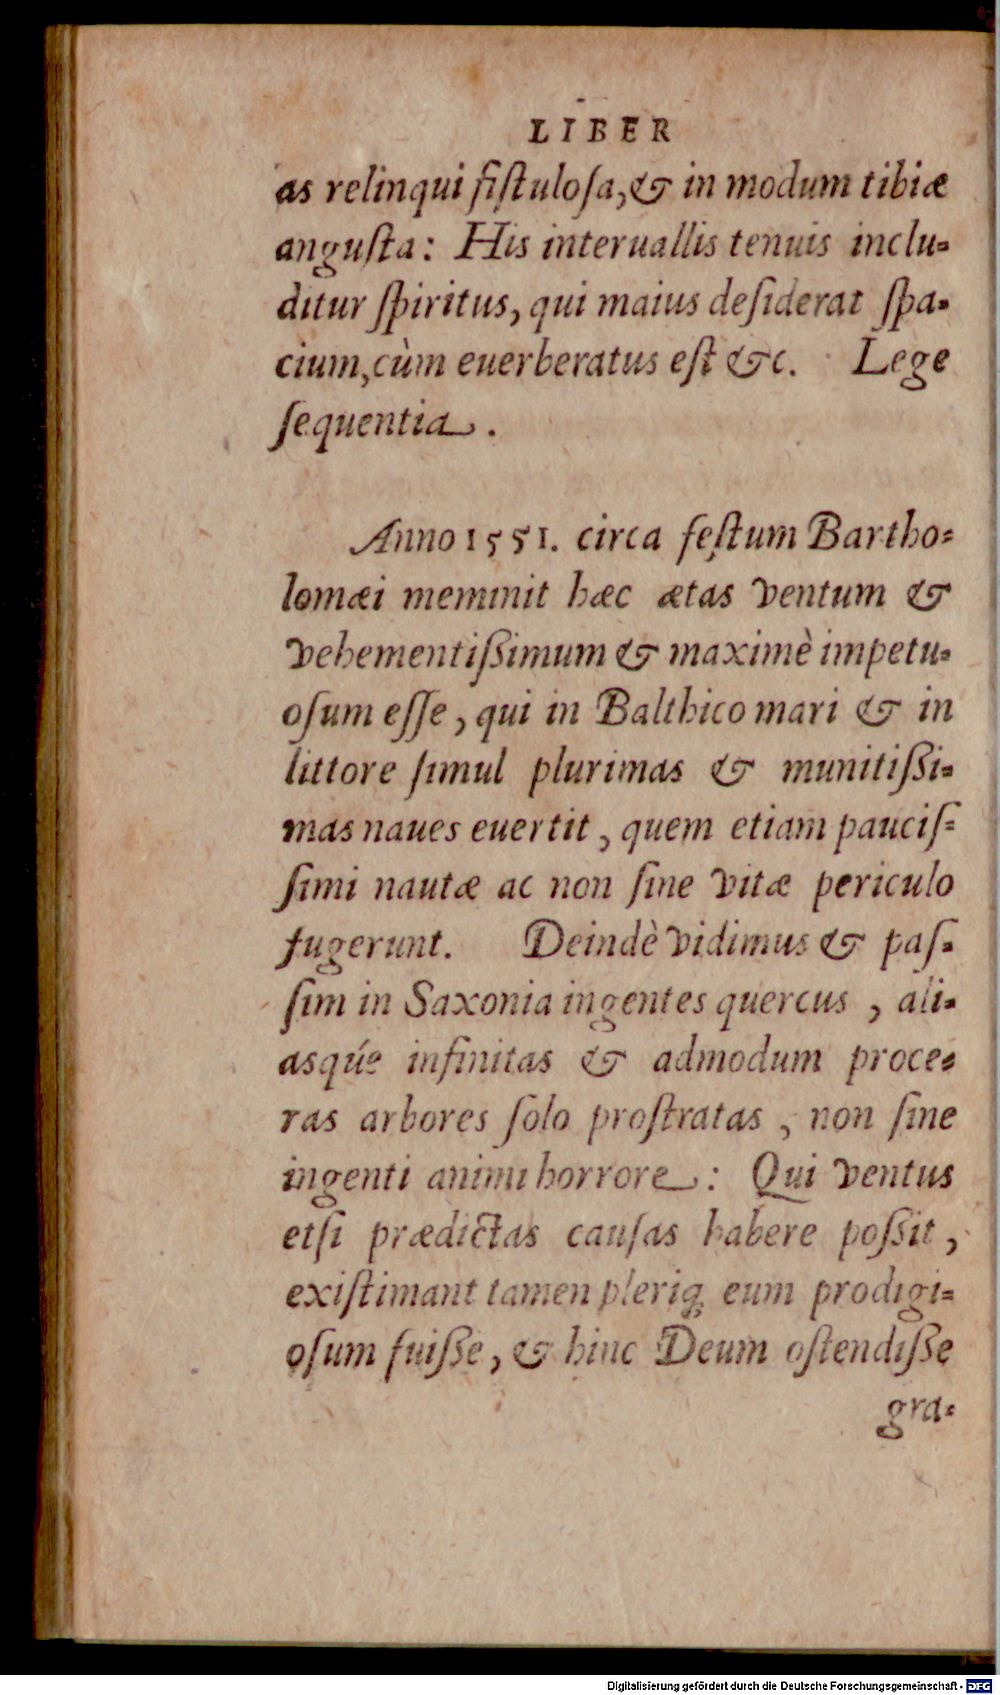 LIBER
as relinqui fiſtuloſa, & in modum tibiæ
anguſta: His interuallis tenuis inclu-
ditur ſpiritus, qui maius deſiderat ſpa-
cium, cùm euerberatus eſt &c. Lege
ſequentia.
Anno 1551. circa feſtum Bartho-
lomæi meminit hæc ætas ventum &
vehementiſſimum & maximè impetu-
oſum eſſe, qui in Balthico mari & in
littore ſimul plurimas & munitiſſi-
mas naues euertit, quem etiam pauciſ-
ſimi nautæ ac non ſine vitæ periculo
fugerunt. Deindè vidimus & paſ-
ſim in Saxonia ingentes quercus, ali-
asqúe infinitas & admodum proce-
ras arbores ſolo proſtratas, non ſine
ingenti animi horrore: Qui ventus
etſi prædictas cauſas habere poſſit,
exiſtimant tamen pleriq; eum prodigi-
oſum fuiſſe, & hinc Deum oſtendiſſe
gra-
Digitalisierung gefördert durch die Deutsche Forschungsgemeinschaft - DFG